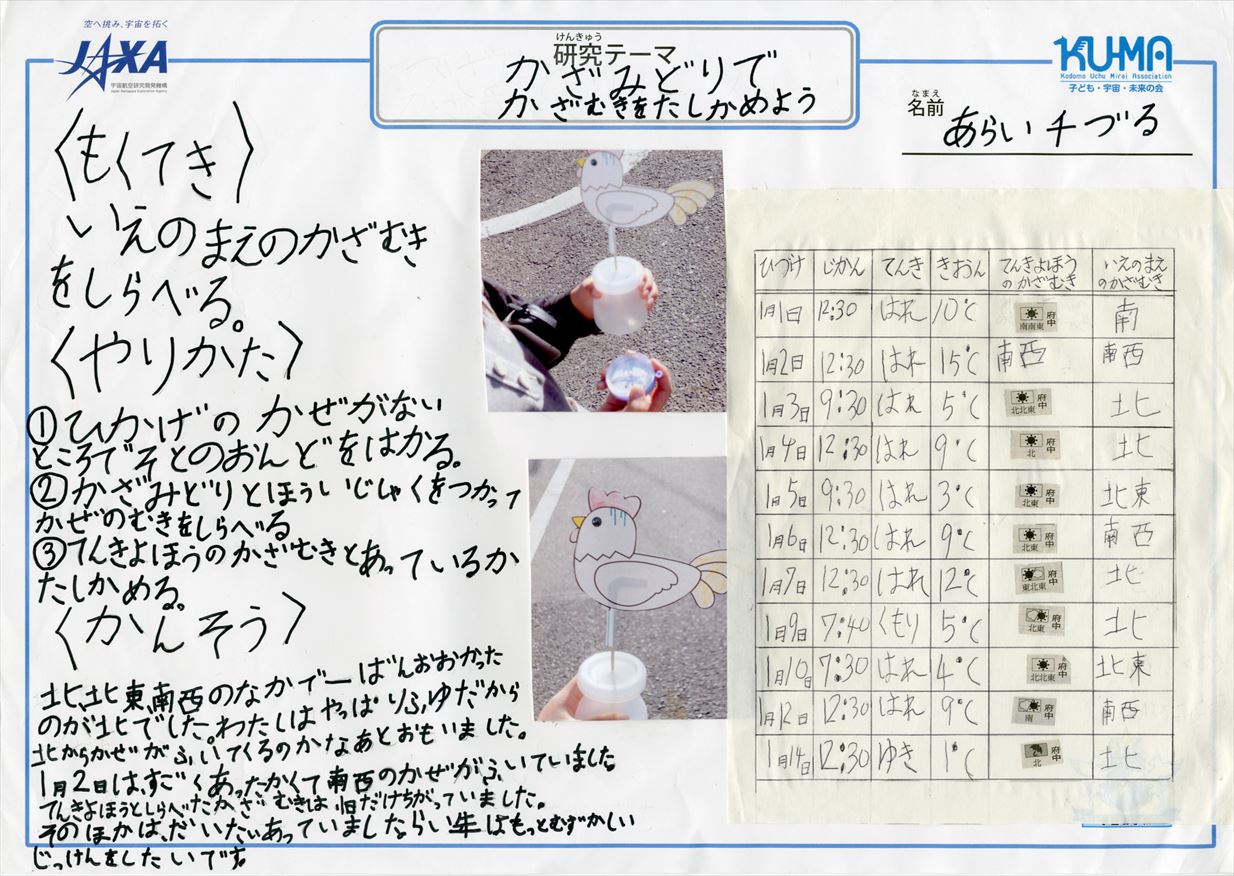 空へ挑み、宇宙を拓く
JAXA
宇宙航空研究開発機構
Japan Aerospace Exploration Agency
けんきゅう
研究テーマ
かざみどりで
かざむきをたしかめよう
KU-MA
Kodomo Uchu Mirai Association
子ども・宇宙・未来の会
なまえ
名前
あらい千づる
〈もくてき〉
いえのまえのかざむき
をしらべる。
〈やりかた〉
①ひかげのかぜがない
ところでそとのおんどをはかる。
②かざみどりとほういじしゃくをつかって
かぜのむきをしらべる
③てんきよほうのかざむきとあっているか
たしかめる。
〈かんそう〉
北、北東、南西のなかで一ばんおおかった
のが北でした。わたしはやっぱりふゆだから
北からかぜがふいてくるのかなあとおもいました。
1月2日は、すごくあったかくて南西のかぜがふいていました
てんきよほうとしらべたかざむきは1日だけちがっていました。
そのほかは、だいたいあっていました。らい年はもっとむずかしい
じっけんをしたいです。
ひづけ じかん てんき きおん てんきよほうのかざむき いえのまえのかざむき
1月1日 12:30 はれ 10℃ 府中 南南東 南
1月2日 12:30 はれ 15℃ 南西 南西
1月3日 9:30 はれ 5℃ 府中 北北東 北
1月4日 12:30 はれ 9℃ 府中 北 北
1月5日 9:30 はれ 3℃ 府中 北東 北東
1月6日 12:30 はれ 9℃ 府中 北東 南西
1月7日 12:30 はれ 12℃ 府中 東北東 北
1月9日 7:40 くもり 5℃ 府中 北東 北
1月10日 7:30 はれ 4℃ 府中 北北東 北東
1月12日 12:30 はれ 9℃ 府中 南 南西
1月14日 12:30 ゆき 1℃ 府中 北 北